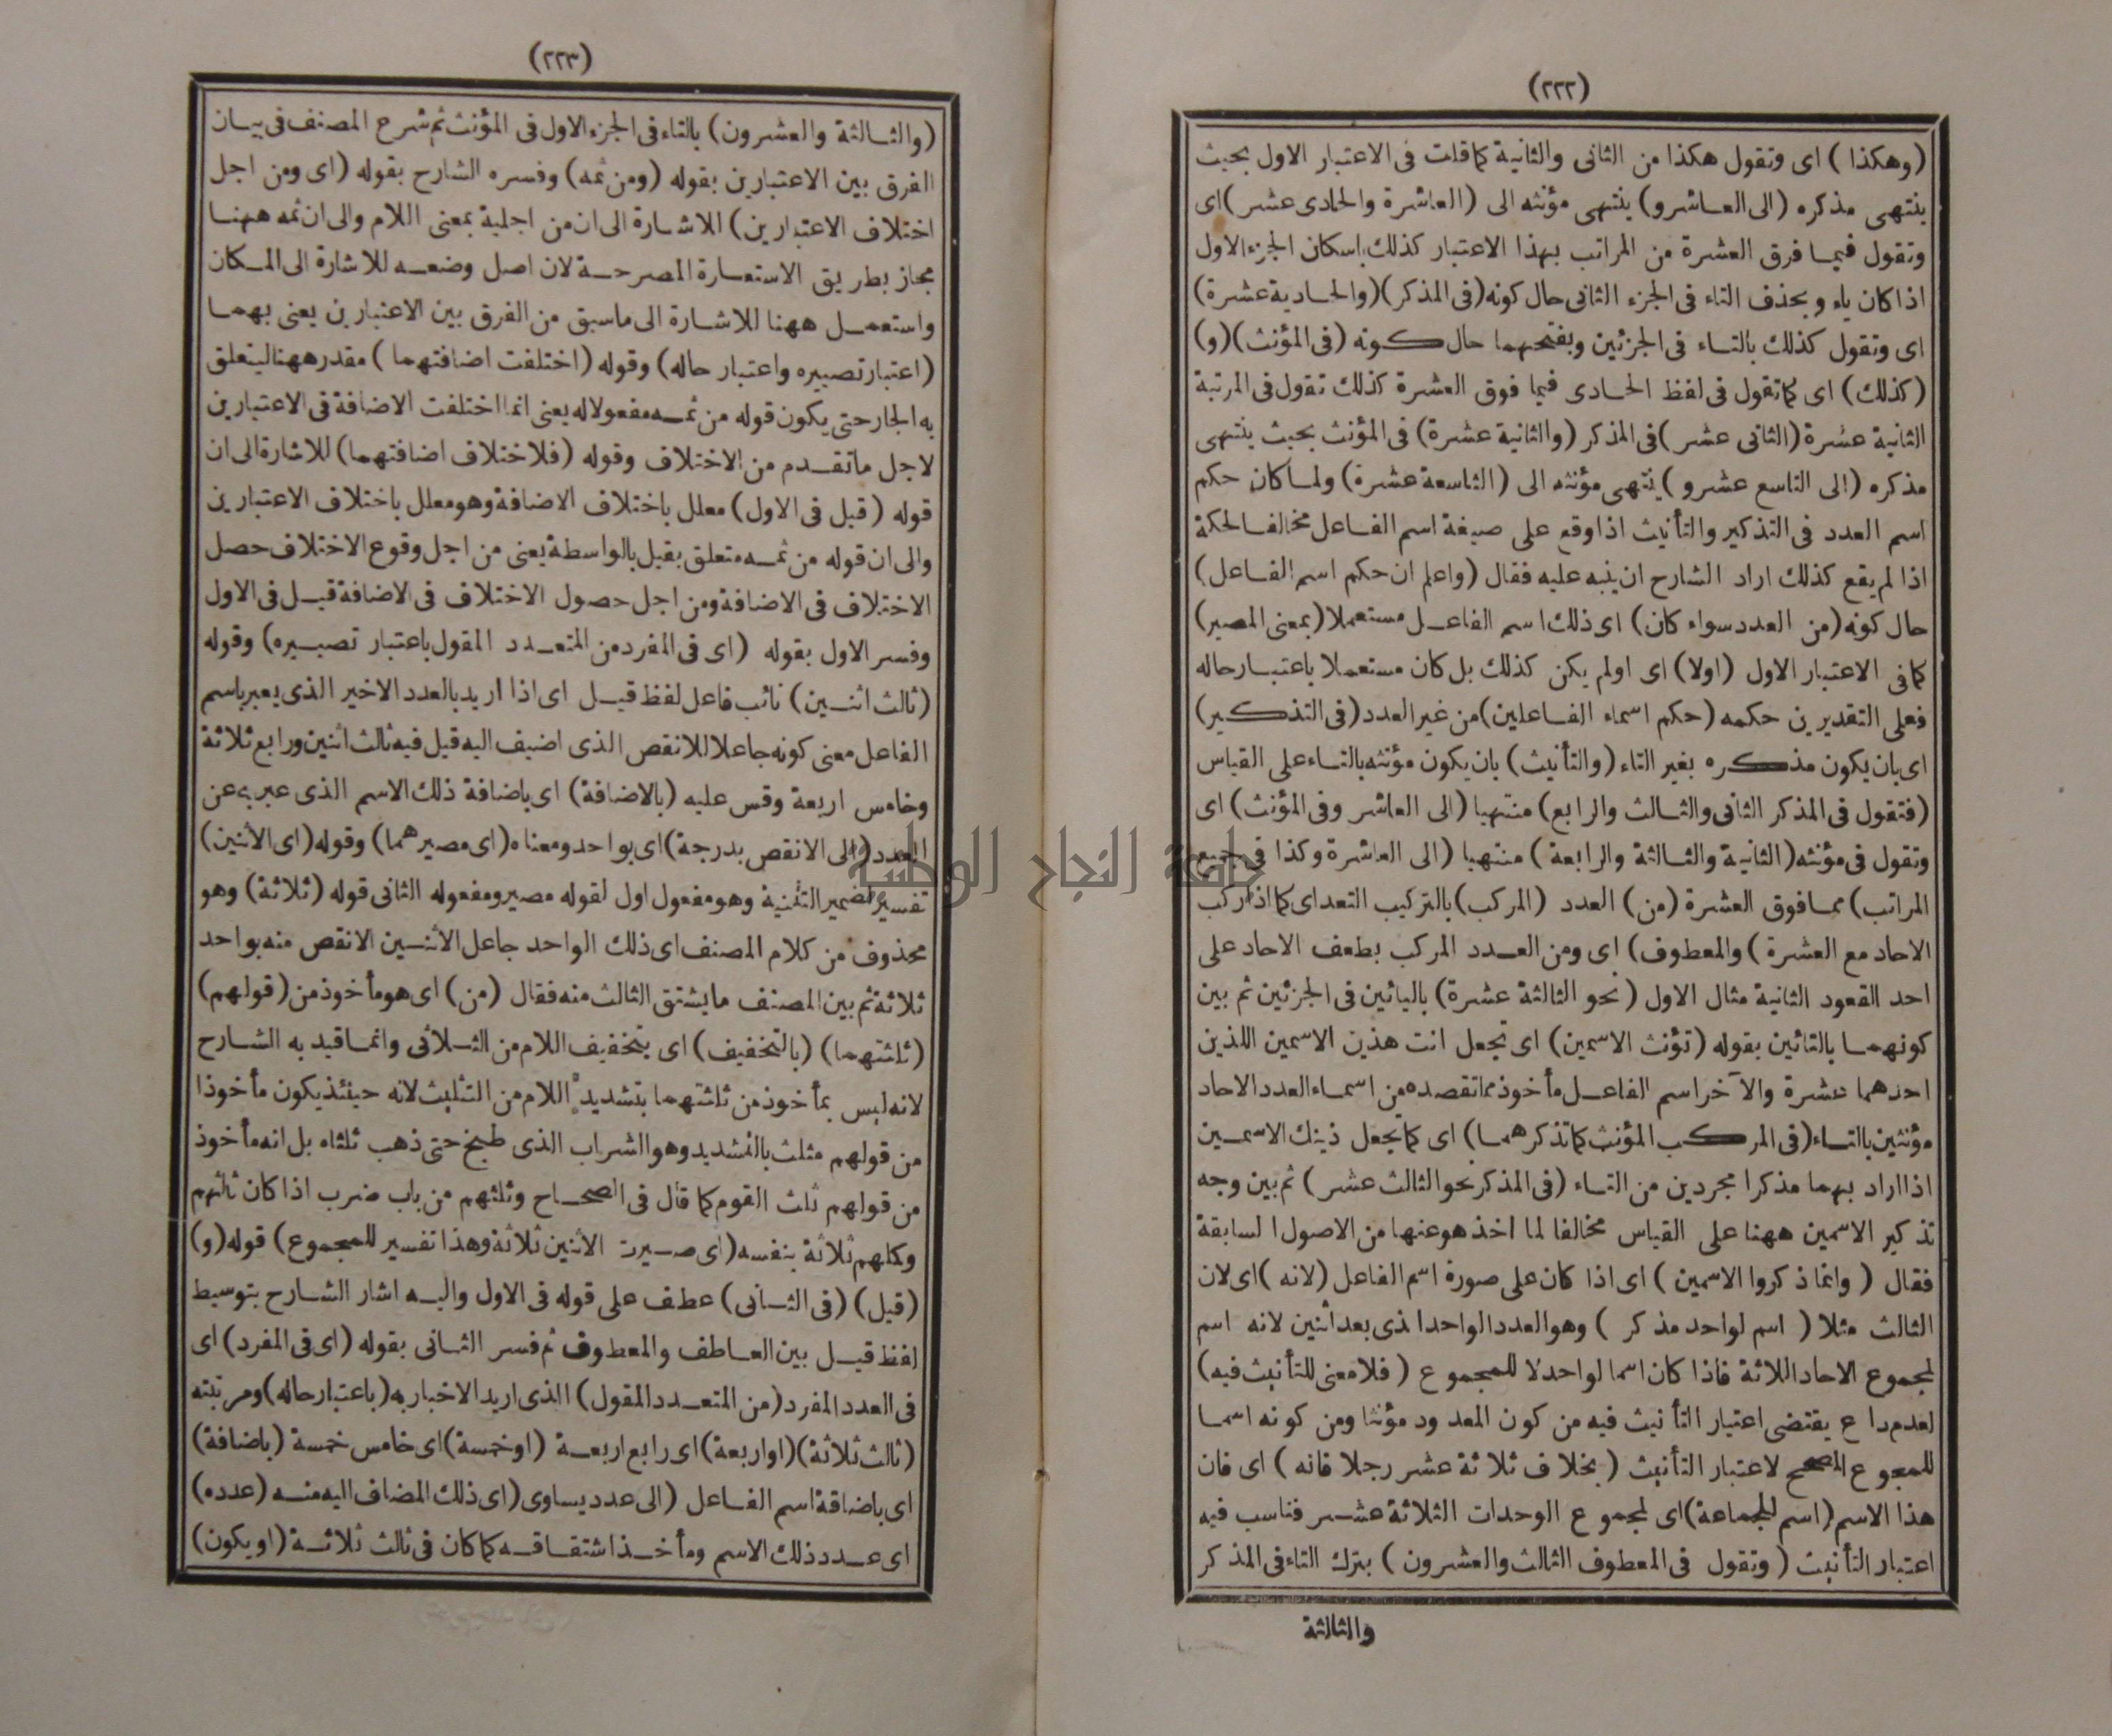 (٢٢٢)
(وهكذا) اى وتقول هكذا من الثانى والثانية كما قلت فى الاعتبار الاول بحيث
ينتهى مذكره (الى العاشر و) ينتهى مؤنثه الى (العاشرة والحادى عشر) اى
وتقول فيما فرق العشرة من المراتب بهذا الاعتبار كذلك باسكان الجزء الاول
اذا كان ياء وبحذف التاء فى الجزء الثانى حال كونه (فى المذكر) (والحادية عشرة)
اى وتقول كذلك بالتاء فى الجزئين وبفتحهما حال كونه (فى المؤنث) (و)
(كذلك) اى كما تقول فى لفظ الحادى فيما فوق العشرة كذلك تقول فى المرتبة
الثانية عشرة (الثانى عشر) فى المذكر (والثانية عشرة) فى المؤنث بحيث ينتهى
مذكره (الى التاسع عشر و) ينتهى مؤنثه الى (التاسعة عشرة) ولما كان حكم
اسم العدد فى التذكير والتأنيث اذا وقع على صيغة اسم الفاعل مخالفا لحكمة
اذا لم يقع كذلك اراد الشارح ان ينبه عليه فقال (واعلم ان حكم اسم الفاعل)
حال كونه (من العدد سواء كان) اى ذلك اسم الفاعل مستعملا (بمعنى المصير)
كما فى الاعتبار الاول (اولا) اى اولم يكن كذلك بل كان مستعملا باعتبار حاله
فعلى التقديرين حكمه (حكم اسماء الفاعلين) من غير العدد (فى التذكير)
اى بان يكون مذكره بغير التاء (والتأنيث) بان يكون مؤنثه بالتاء على القياس
(فتقول فى المذكر الثانى والثالث والرابع) منتهيا (الى العاشر وفى المؤنث) اى
وتقول فى مؤنثه (الثانية والثالثة والرابعة) منتهيا (الى العاشرة وكذا فى جميع
المراتب) مما فوق العشرة (من) العدد (المركب) بالتركيب التعداى كما اذا ركب
الاحاد مع العشرة) والمعطوف) اى ومن العدد المركب بطعف الاحاد على
احد القعود الثانية مثال الاول (نحو الثالثة عشرة) باليائين فى الجزئين ثم بين
كونهما بالتائين بقوله (تؤنث الاسمين) اى تجعل انت هذين الاسمين اللذين
احدهما عشرة والآخر اسم الفاعل مأخوذ مما تقصده من اسماء العدد الاحاد
مؤنثين بالتاء (فى المركب المؤنث كما تذكرهما) اى كما تجعل ذينك الاسمين
اذا اراد بهما مذكرا مجردين من التاء (فى المذكر نحو الثالث عشر) ثم بين وجه
تذكير الاسمين ههنا على القياس مخالفا لما اخذ هو عنها من الاصول السابقة
فقال (وانما ذكروا الاسمين) اى اذا كان على صورة اسم الفاعل (لانه) اى لان
الثالث مثلا (اسم لواحد مذكر) وهو العدد الواحد اذى بعد اثنين لانه اسم
لمجموع الاحاد اللاثة فاذا كان اسما لواحد لا للمجموع (فلا معنى للتأنيث فيه)
لعدم داع يقتضى اعتبار التأنيث فيه من كون المعدود مؤنثا ومن كونه اسما
للمجوع المصحح لاعتبار التأنيث (بخلاف ثلاثة عشر رجلا فانه) اى فان
هذا الاسم (اسم للجماعة) اى لمجموع الوحدات الثلاثة عشر فناسب فيه
اعتبار التأنيث (وتقول فى المعطوف الثالث والعشرون) بترك التاء فى المذكر
والثالثة
(٢٢٣)
(والثالثة والعشرون) بالتاء فى الجزء الاول فى المؤنث ثم شرع المصنف فى بيان
الفرق بين الاعتبارين بقوله (ومن ثمه) وفسره الشارح بقوله (اى ومن اجل
اختلاف الاعتبارين) للاشارة الى ان من اجلية بمعنى اللام والى ان ثمه ههنا
مجاز بطريق الاستعارة المصرحة لان اصل وضعه للاشارة الى المكان
واستعمل ههنا للاشارة الى ما سبق من الفرق بين الاعتبارين يعنى بهما
(اعتبار تصييره واعتبار حاله) وقوله (اختلفت اضافتهما) مقدر ههنا ليتعلق
به الجار حتى يكون قوله من ثمه مفعولا له يعنى انما اختلفت الاضافة فى الاعتبارين
لاجل ما تقدم من الاختلاف وقوله (فلاختلاف اضافتهما) للاشارة الى ان
قوله (قيل فى الاول) معلل باختلاف الاضافة وهو معلل باختلاف الاعتبارين
والى ان قوله من ثمه متعلق بقيل بالواسطة يعنى من اجل وقوع الاختلاف حصل
الاختلاف فى الاضافة ومن اجل حصول الاختلاف فى الاضافة قيل فى الاول
وفسر الاول بقوله (اى فى المفرد من المتعدد المقول باعتبار تصييره) وقوله
(ثالث اثنين) نائب فاعل لفظ قيل اى اذا اريد بالعدد الاخير الذى يعبر باسم
الفاعل معنى كونه جاعلا للانقص الذى اضيف اليه قيل فيه ثالث اثنين ورابع ثلاثة
وخامس اربعة وقس عليه (بالاضافة) اى باضافة ذلك الاسم الذى عبر به عن
العدد (الى الانقص بدرجة) اى بواحد ومعناه (اى مصيرهما) وقوله (اى الاثنين)
تفسير لضمير التثنية وهو مفعول اول لقوله مصير ومفعوله الثانى قوله (ثلاثة) وهو
محذوف من كلام المصنف اى ذلك الواحد جاعل الاثنين الانقص منه بواحد
ثلاثة ثم بين المصنف ما يشتق الثالث منه فقال (من) اى هو مأخوذ من (قولهم)
(ثلثتهما) (بالتخفيف) اى بتخفيف اللام من الثلاثى وانما قيد به الشارح
لانه ليس بمأخوذ من ثلثتهما بتشديد اللام من التثليث لانه حينئذ يكون مأخوذا
من قولهم مثلث بالتشديد وهو الشراب الذى طبخ حتى ذهب ثلثاه بل انه مأخوذ
من قولهم ثلث القوم كما قال فى الصحاح وثلثهم من باب ضرب اذا كان ثالثهم
وكملهم ثلاثة بنفسه (اى صيرت الاثنين ثلاثة وهذا تفسير للمجموع) قوله (و)
(قيل) (فى الثانى) عطف على قوله فى الاول واليه اشار الشارح بتوسيط
لفظ قيل بين العاطف والمعطوف ثم فسر الثانى بقوله (اى فى المفرد) اى
فى العدد المفرد (من المتعدد المقول) الذى اريد الاخبار به (باعتبار حاله) ومرتبته
(ثالث ثلاثة) (او اربعة) اى رابع اربعة (او خمسة) اى خامس خمسة (باضافة)
اى باضافة اسم الفاعل (الى عدد يساوى (اى ذلك المضاف اليه منه (عدده)
اى عدد ذلك الاسم ومأخذ اشتقاقه كما كان فى ثالث ثلاثة (او يكون)
جامعة النجاح الوطنية